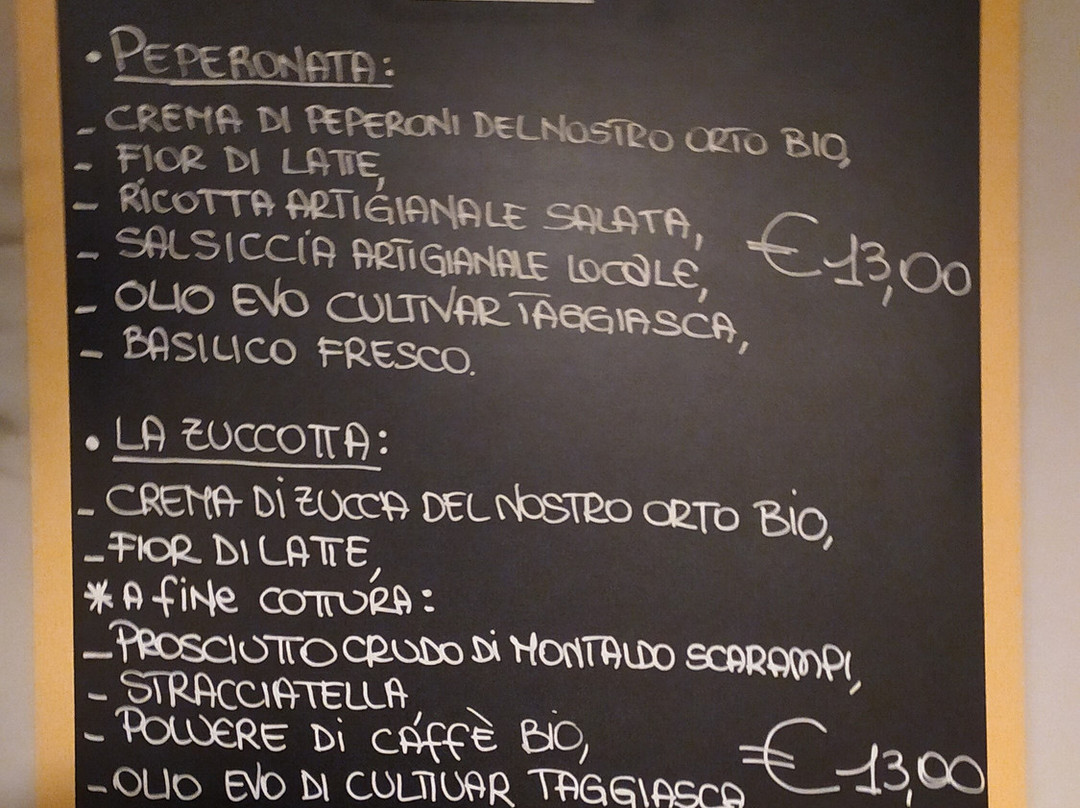 • PEPERONATA:
- CREMA DI PEPERONI DEL NOSTRO ORTO BIO,
- FIOR DI LATTE,
- RICOTTA ARTIGIANALE SALATA,
- SALSICCIA ARTIGIANALE LOCALE,
€ 13,00
- OLIO EVO CULTIVAR TAGGIASCA,
- BASILICO FRESCO.
• LA ZUCCOTTA:
- CREMA Di ZUCCA DEL NOSTRO ORTO BiO,
- FIOR DI LATTE,
* A fiNe COTTURA:
- PROSCIUTTO CRUDO Di MONTALDO SCARAMPI,
- STRACCIATELLA,
- POLVERE Di CAFFÈ BIO,
€ 13,00
- OLIO EVO DI CULTIVAR TAGGIASCA